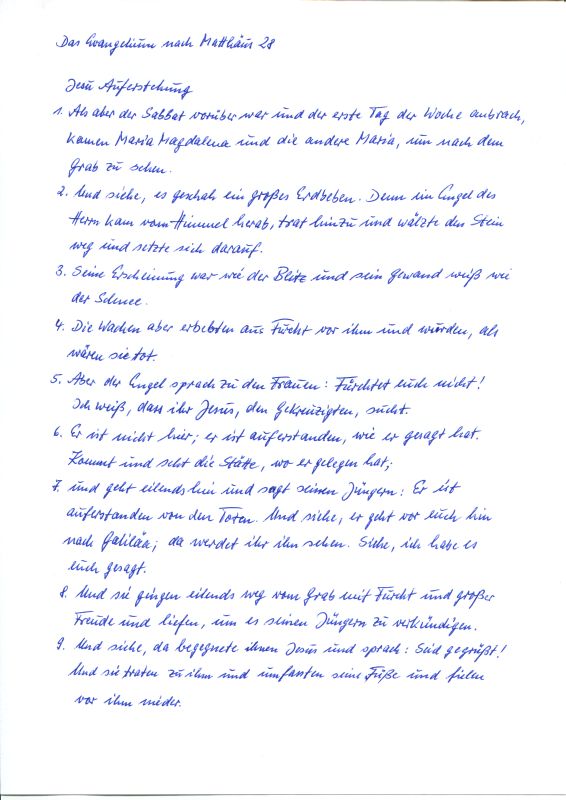 Das Evangelium nach Matthäus 28
Jesu Auferstehung
1. Als aber der Sabbat vorüber war und der erste Tag der Woche anbrach,
kamen Maria Magdalena und die andere Maria, um nach dem
Grab zu sehen.
2. Und siehe, es geschah ein großes Erdbeben. Denn ein Engel des
Herrn kam vom Himmel herab, trat hinzu und wälzte den Stein
weg und setzte sich darauf.
3. Seine Erscheinung war wie der Blitz und sein Gewand weiß wie
der Schnee.
4. Die Wachen aber erbebten aus Furcht vor ihm und wurden, als
wären sie tot.
5. Aber der Engel sprach zu den Frauen: Fürchtet euch nicht!
Ich weiß, dass ihr Jesus, den Gekreuzigten, sucht.
6. Er ist nicht hier; er ist auferstanden, wie er gesagt hat.
Kommt und seht die Stätte, wo er gelegen hat;
7. und geht eilends hin und sagt seinen Jüngern: Er ist
auferstanden von den Toten. Und siehe, er geht vor euch hin
nach Galiläa; da werdet ihr ihn sehen. Siehe, ich habe es
euch gesagt.
8. Und sie gingen eilends weg vom Grab mit Furcht und großer
Freude und liefen, um es seinen Jüngern zu verkündigen.
9. Und siehe, da begegnete ihnen Jesus und sprach: Seid gegrüßt!
Und sie traten zu ihm und umfassten seine Füße und fielen
vor ihm nieder.